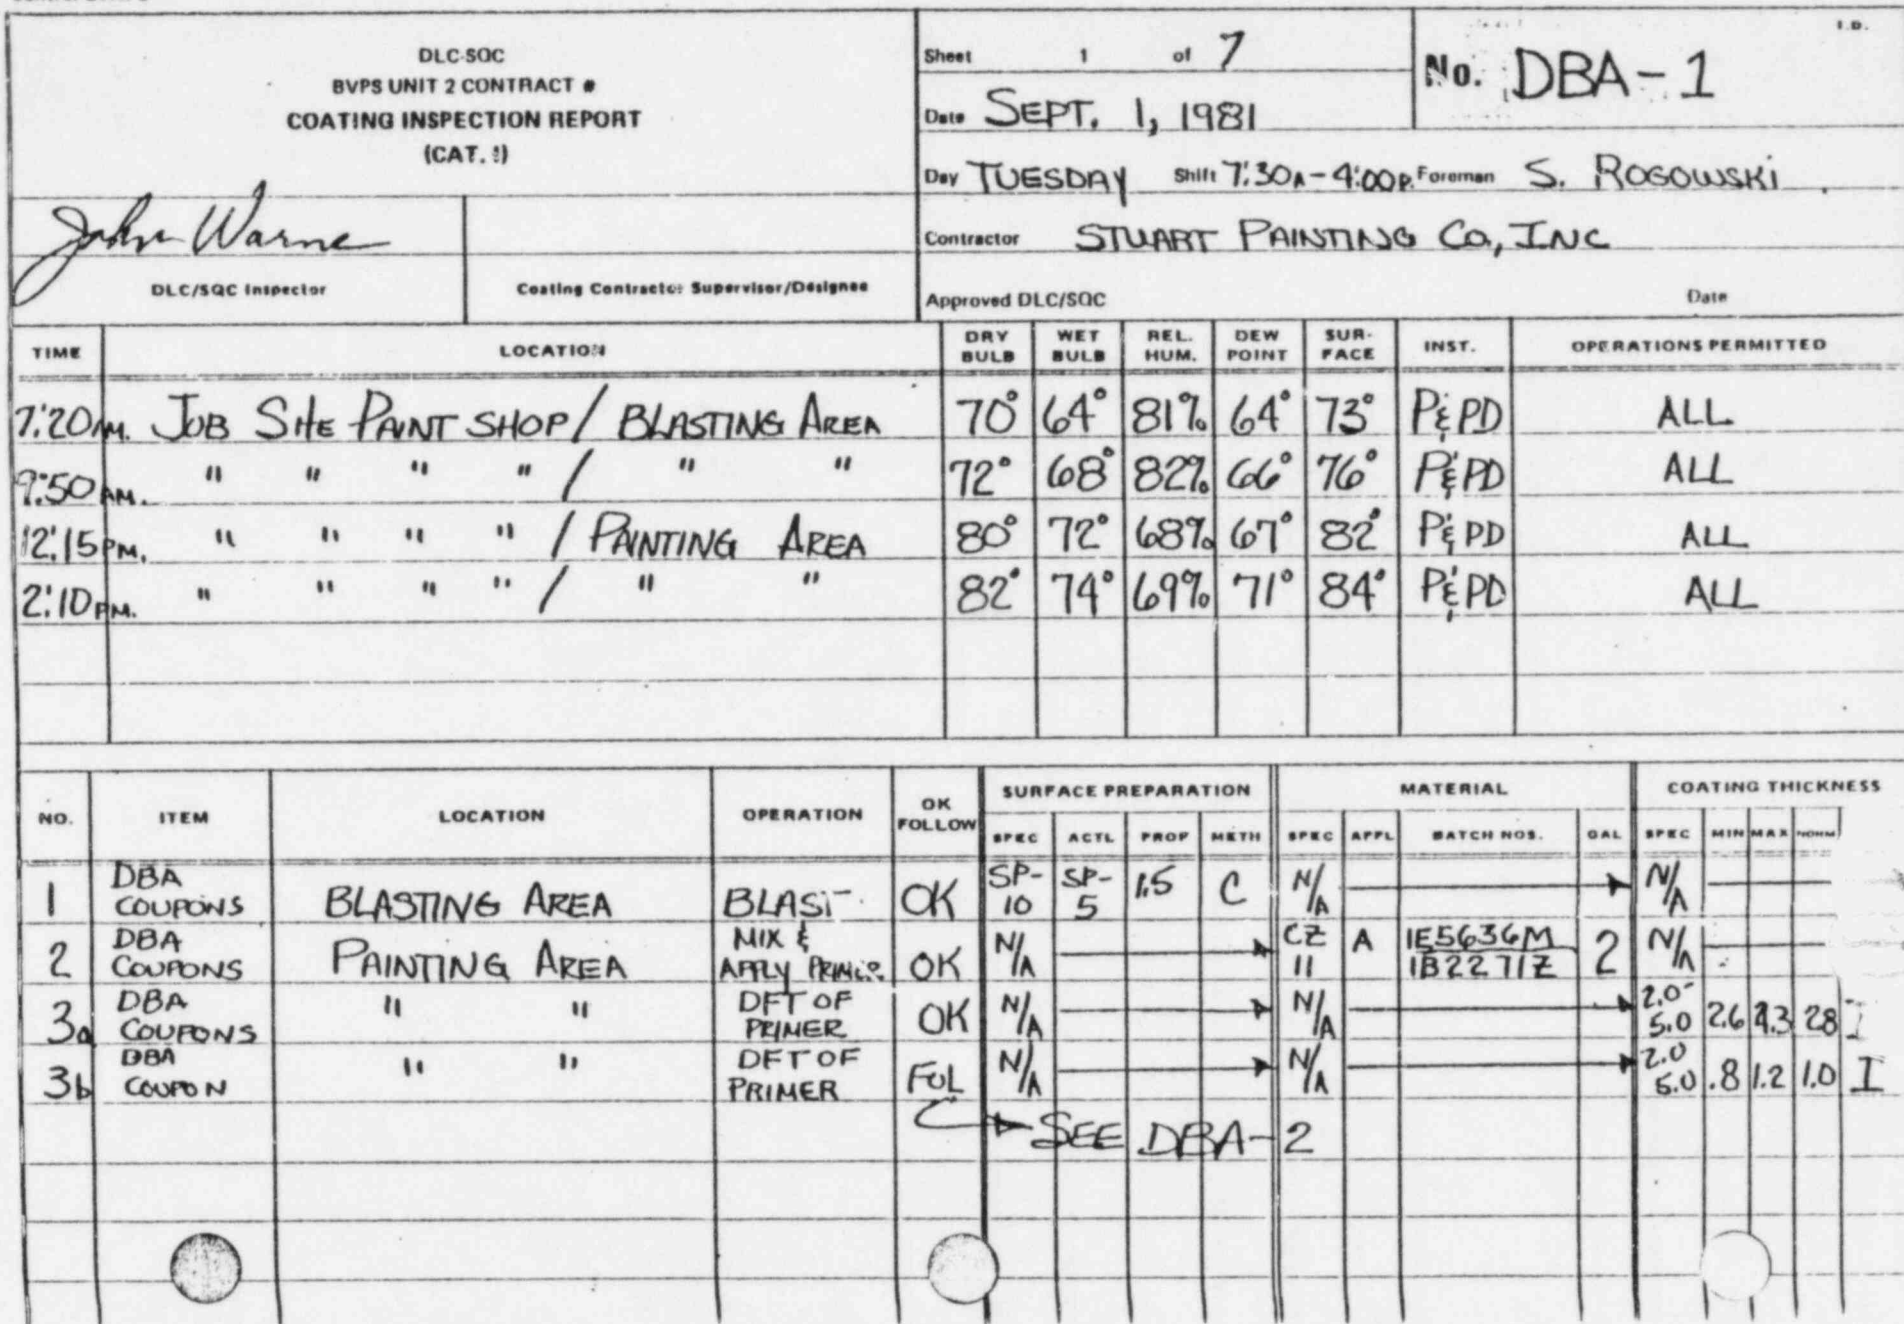 DLC-SQC
BVPS UNIT 2 CONTRACT #
COATING INSPECTION REPORT
(CAT. I)
John Warne
DLC/SQC Inspector
Coating Contractor Supervisor/Designee
Sheet 1 of 7
I.D.
No. DBA-1
Date SEPT. 1, 1981
Day TUESDAY Shift 7:30A-4:00P. Foreman S. ROGOWSKI
Contractor STUART PAINTING CO., INC
Approved DLC/SQC Date
TIME LOCATION DRY BULB WET BULB REL. HUM. DEW POINT SUR-FACE INST. OPERATIONS PERMITTED
7:20AM. JOB SITE PAINT SHOP / BLASTING AREA 70° 64° 81% 64° 73° P&PD ALL
9:50AM. " " " " / " " 72° 68° 82% 66° 76° P&PD ALL
12:15PM. " " " " / PAINTING AREA 80° 72° 68% 67° 82° P&PD ALL
2:10PM. " " " " / " " 82° 74° 69% 71° 84° P&PD ALL
NO. ITEM LOCATION OPERATION OK FOLLOW SURFACE PREPARATION MATERIAL COATING THICKNESS
SPEC ACTL PROF METH SPEC APPL BATCH NOS. GAL SPEC MIN MAX NORM
1 DBA COUPONS BLASTING AREA BLAST OK SP-10 SP-5 1.5 C N/A N/A
2 DBA COUPONS PAINTING AREA MIX & APPLY PRIMER OK N/A CZ 11 A 1E5636M 1B2271Z 2 N/A
3a DBA COUPONS " " DFT OF PRIMER OK N/A N/A 2.0-5.0 2.6 2.8 I
3b DBA COUPON " " DFT OF PRIMER FOL N/A N/A 2.0 5.0 .8 1.2 1.0 I
SEE DBA-2